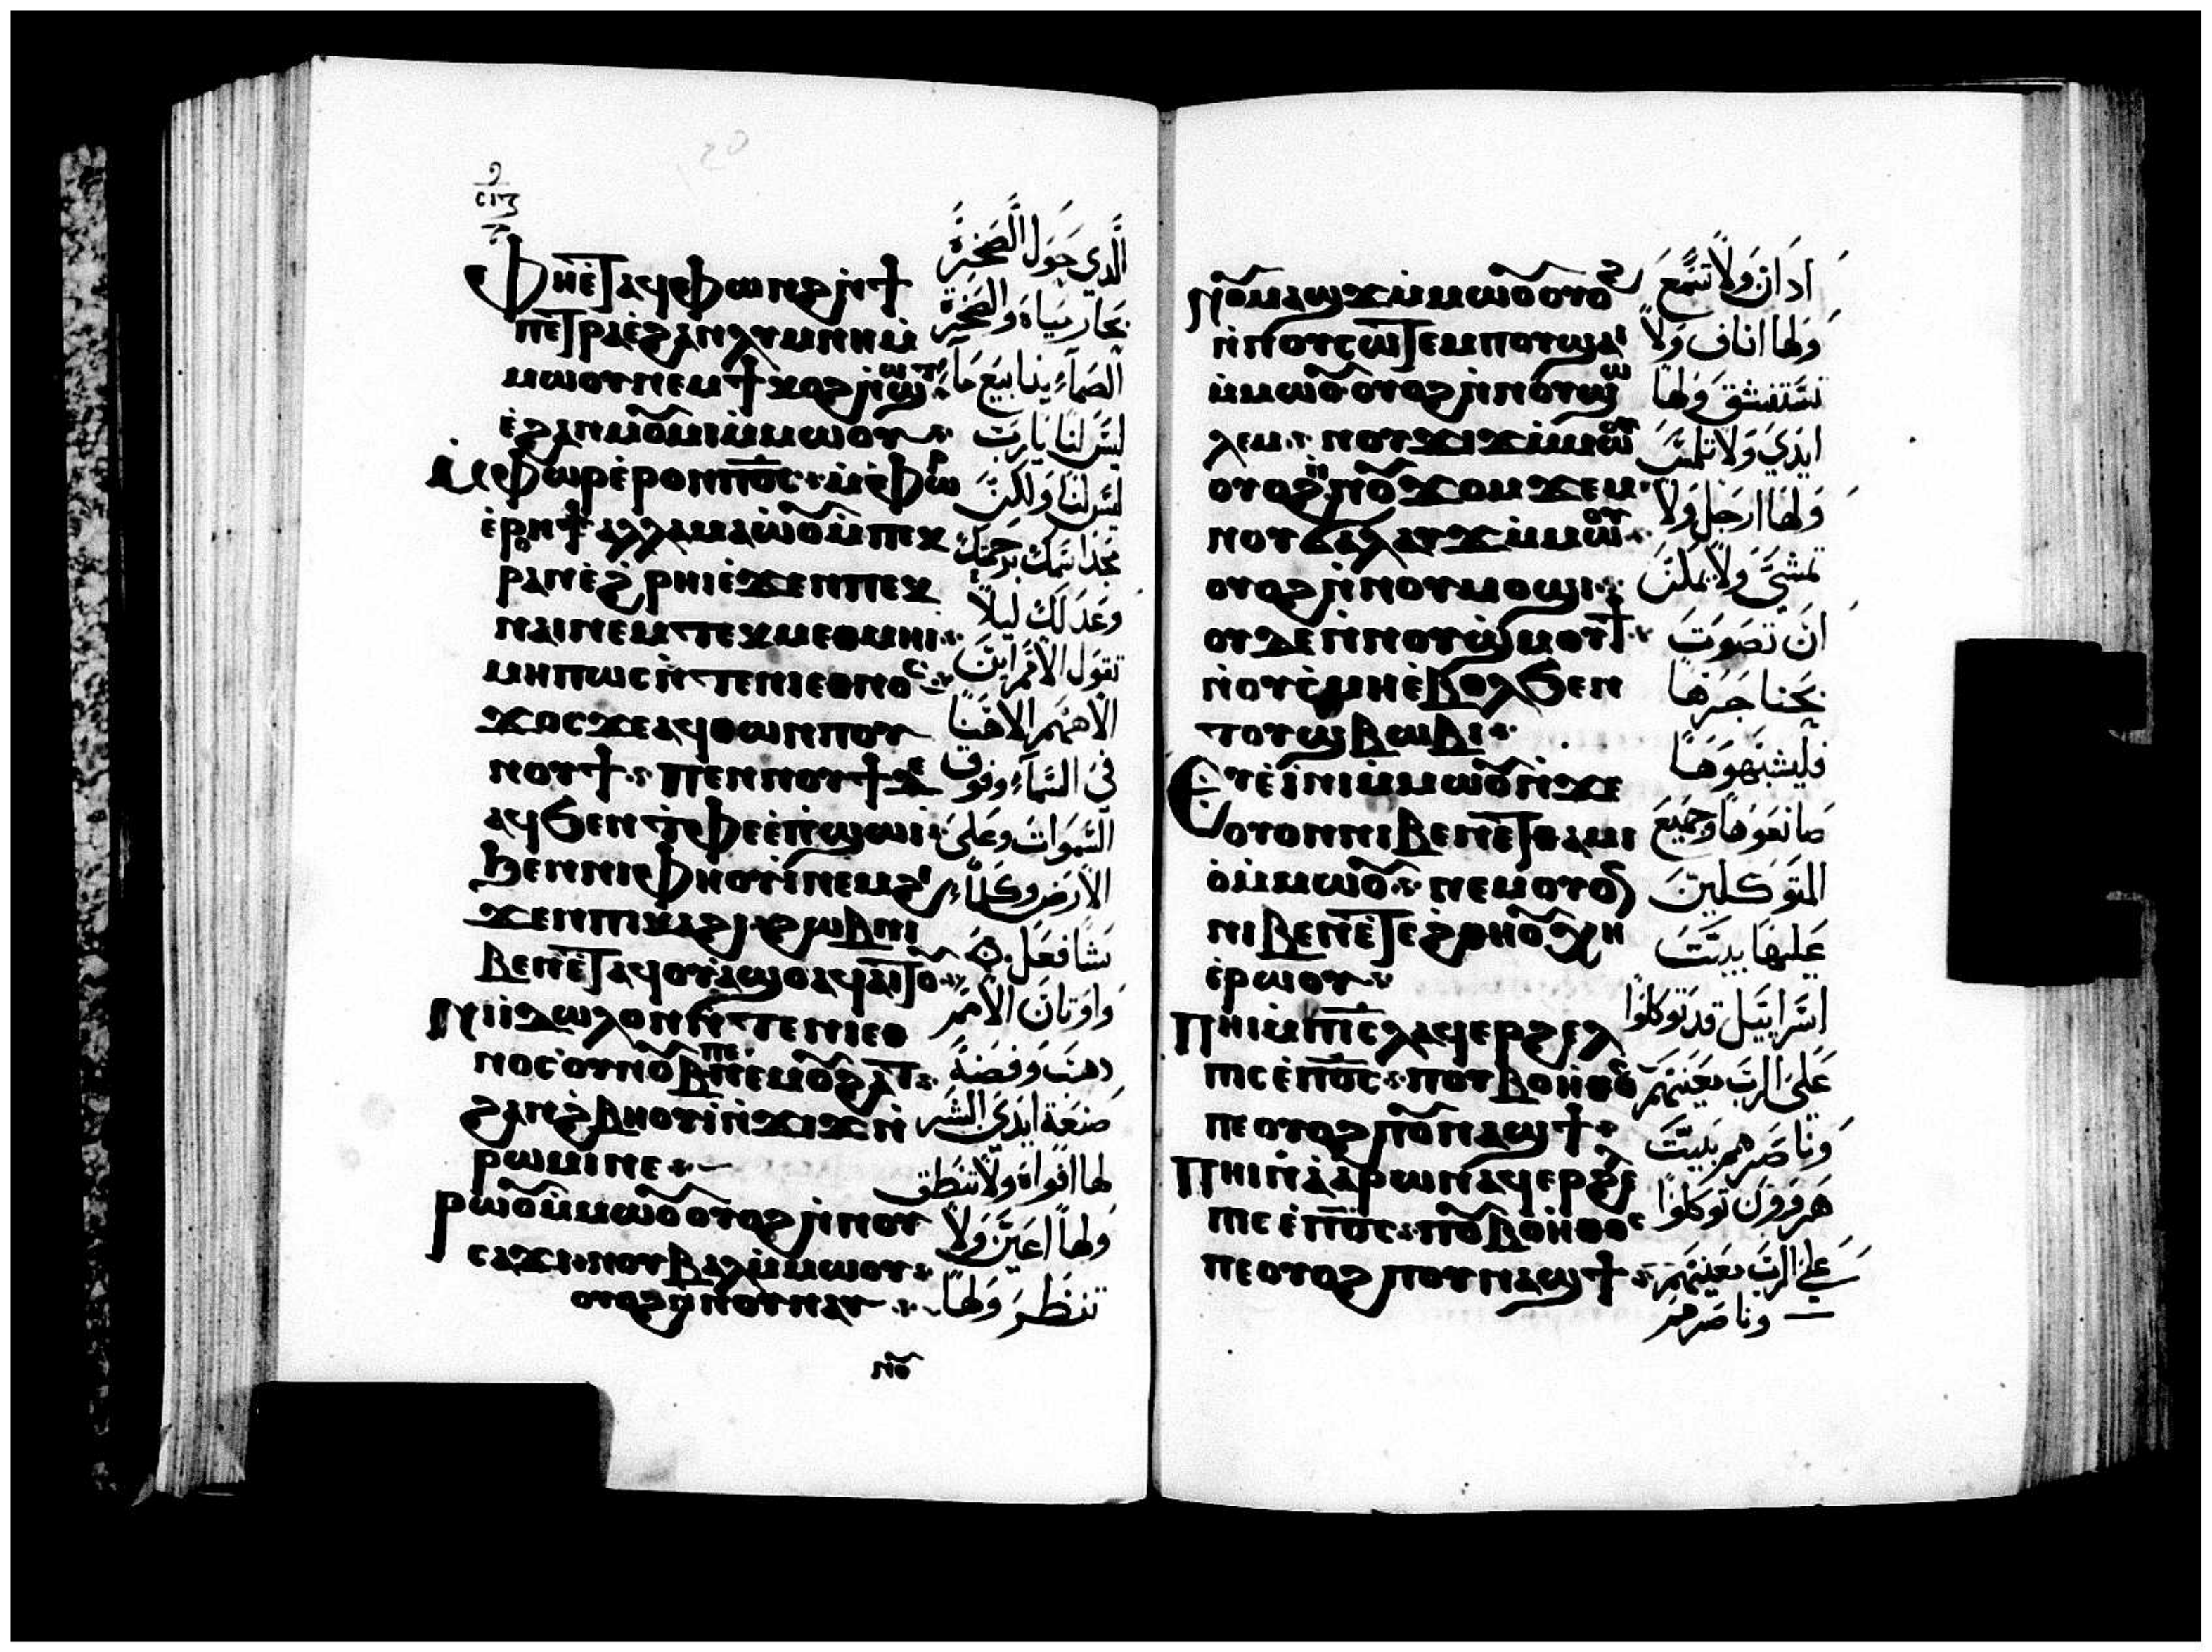 ⲥⲓⲍ
Ⲫⲏⲉ̀ⲧⲁϥⲫⲱⲛϩ ⲛ̀ϯ
ⲡⲉⲧⲣⲁ ⲉ̀ϩⲁⲛⲗⲩⲙⲛⲏ ⲙ̀
ⲙⲱⲟⲩ ⲛⲉⲙ ϯⲭⲟϩ ⲛ̀ϣⲱⲧ
ⲉ̀ϩⲁⲛⲙⲟⲩⲙⲓ ⲙ̀ⲙⲱⲟⲩ
Ⲙ̀ⲫⲱⲣ ⲉ̀ⲣⲟⲛ ⲡⲟ̅ⲥ̅ ⲙ̀ⲫⲱⲣ
ⲉ̀ⲣⲟⲛ ⲁⲗⲗⲁ ⲙⲁⲱ̀ⲟⲩ ⲙ̀ⲡⲉⲕ
ⲣⲁⲛ ⲉ̀ϩ̀ⲣⲏⲓ ⲉ̀ϫⲉⲛ ⲡⲉⲕ
ⲛⲁⲓ ⲛⲉⲙ ⲧⲉⲕⲙⲉⲑⲙⲏⲓ
ⲙⲏⲡⲱⲥ ⲛ̀ⲧⲉ ⲛⲓⲉⲑⲛⲟⲥ
ϫⲟⲥ ϫⲉ ⲁϥⲑⲱⲛ ⲡⲟⲩ
ⲛⲟⲩϯ ⲡⲉⲛⲛⲟⲩϯ ⲇⲉ
ⲁϥϧⲉⲛ ⲧ̀ⲫⲉ ⲉ̀ⲡ̀ϣⲱⲓ
ϧⲉⲛ ⲛⲓⲫⲏⲟⲩⲓ̀ ⲛⲉⲙ ϩⲓ
ϫⲉⲛ ⲡⲓⲕⲁϩⲓ ϩⲱⲃ ⲛⲓ
ⲃⲉⲛ ⲉ̀ⲧⲁϥⲟⲩⲁ̀ϣⲟⲩ ⲁϥⲁⲓⲧⲟⲩ
Ⲛⲓⲓ̀ⲇⲱⲗⲟⲛ ⲛ̀ⲧⲉ ⲛⲓⲉⲑ
ⲛⲟⲥ ⲟⲩⲛⲟⲩⲃ ⲡⲉ ⲛⲉⲙ ⲟⲩϩⲁⲧ
ϩⲁⲛϩ̀ⲃⲏⲟⲩⲓ̀ ⲛ̀ϫⲓϫ ⲛ̀
ⲣⲱⲙⲓ ⲛⲉ
ⲣⲱⲟⲩ ⲙ̀ⲙⲱⲟⲩ ⲟⲩⲟϩ ⲛ̀ⲛⲟⲩ
ⲥⲁϫⲓ ⲛⲟⲩⲃⲁⲗ ⲙ̀ⲙⲱⲟⲩ
ⲟⲩⲟϩ ⲛ̀ⲛⲟⲩⲛⲁⲩ
ⲛⲟⲩ
الَّذي حَوَل الَّصَخرَة
بحَار ميَاه والصَخرَة
الصَمآء ينابيع مآ
ليسَ لنَا يَا رَبَ
ليسَ لنَا وَلكنَ
وعَدَلَك ليلاً
تقول الأمَم اينَ
الاهَهم الاهَنا
في السَمآء وفوق
السَمَوات وعَلى
الأرَض وكلمَا
يَشَا فعَل
وَاوتَان الأمَم
دهَبَ وفضَة
صَنعَة ايدَي البشَر
لها افوَاه ولا تنطَق
ولهاً اعيَن وَلا
تنظَر وَلهاً
ⲛⲟⲩⲙⲁϣϫ ⲙ̀ⲙⲱⲟⲩ ⲟⲩⲟϩ
ⲛ̀ⲛⲟⲩⲥⲱⲧⲉⲙ ⲛⲟⲩϣⲁⲓ
ⲙ̀ⲙⲱⲟⲩ ⲟⲩⲟϩ ⲛ̀ⲛⲟⲩϣⲱ
ⲗⲉⲙ ⲛⲟⲩϫⲓϫ ⲙ̀ⲙⲱⲟⲩ
ⲟⲩⲟϩ ⲛ̀ⲛⲟⲩϫⲟⲙϫⲉⲙ
ⲛⲟⲩϭⲁⲗⲁⲩϫ ⲙ̀ⲙⲱⲟⲩ
ⲟⲩⲟϩ ⲛ̀ⲛⲟⲩⲙⲟϣⲓ
ⲟⲩⲇⲉ ⲛ̀ⲛⲟⲩϣ̀ⲙⲟⲩϯ
ⲛ̀ⲟⲩⲥ̀ⲙⲏ ⲉ̀ⲃⲟⲗϧⲉⲛ
ⲧⲟⲩϣⲃⲱⲃⲓ
Ⲉⲩⲉ̀ⲓ̀ⲛⲓ ⲙ̀ⲙⲱⲟⲩ ⲛ̀ϫⲉ
ⲟⲩⲟⲛ ⲛⲓⲃⲉⲛ ⲉ̀ⲧⲑⲁⲙⲓ
ⲟ̀ ⲙ̀ⲙⲱⲟⲩ ⲛⲉⲙ ⲟⲩⲟⲛ
ⲛⲓⲃⲉⲛ ⲉ̀ⲧⲉ ϩⲑⲏⲟⲩ ⲭⲏ
ⲉ̀ⲣⲱⲟⲩ
Ⲡⲏⲓ ⲙ̀ⲡⲓⲥ̅ⲗ̅ ⲁϥⲉⲣϩⲉⲗ
ⲡⲓⲥ ⲉ̀ⲡⲟ̅ⲥ̅ ⲡⲟⲩⲃⲟⲏ̀ⲑⲟⲥ
ⲡⲉ ⲟⲩⲟϩ ⲡⲟⲩⲛⲁϣϯ
Ⲡⲏⲓ ⲛ̀ⲁ̀ⲁ̀ⲣⲱⲛ ⲁϥⲉⲣϩⲉⲗ
ⲡⲓⲥ ⲉ̀ⲡⲟ̅ⲥ̅ ⲡⲟⲩⲃⲟⲏ̀ⲑⲟⲥ
ⲡⲉ ⲟⲩⲟϩ ⲡⲟⲩⲛⲁϣϯ
ادَان وَلاَ تسَمَع
وَلها اناف وَلاً
تسَتنشق وَلهاً
ايدَي وَلا تلمسَ
وَلها ارجَل ولا
تمشَي وَلاً يمكنَ
انَ تصَوتَ
بحَناجَرَها
فليشبَهوَهاً
صَانعوهاً وجَميَع
المتوَكلينَ
عَليهَا بيتَ
اسَراييَل قد توَكلوًا
عَلىَ الرَبَ معَينهَم
وَناصَرهم بَيتَ
هَرَوَوَن توَكلوًا
عَلى الرَبَ معَينهَم
وناصَرهَم